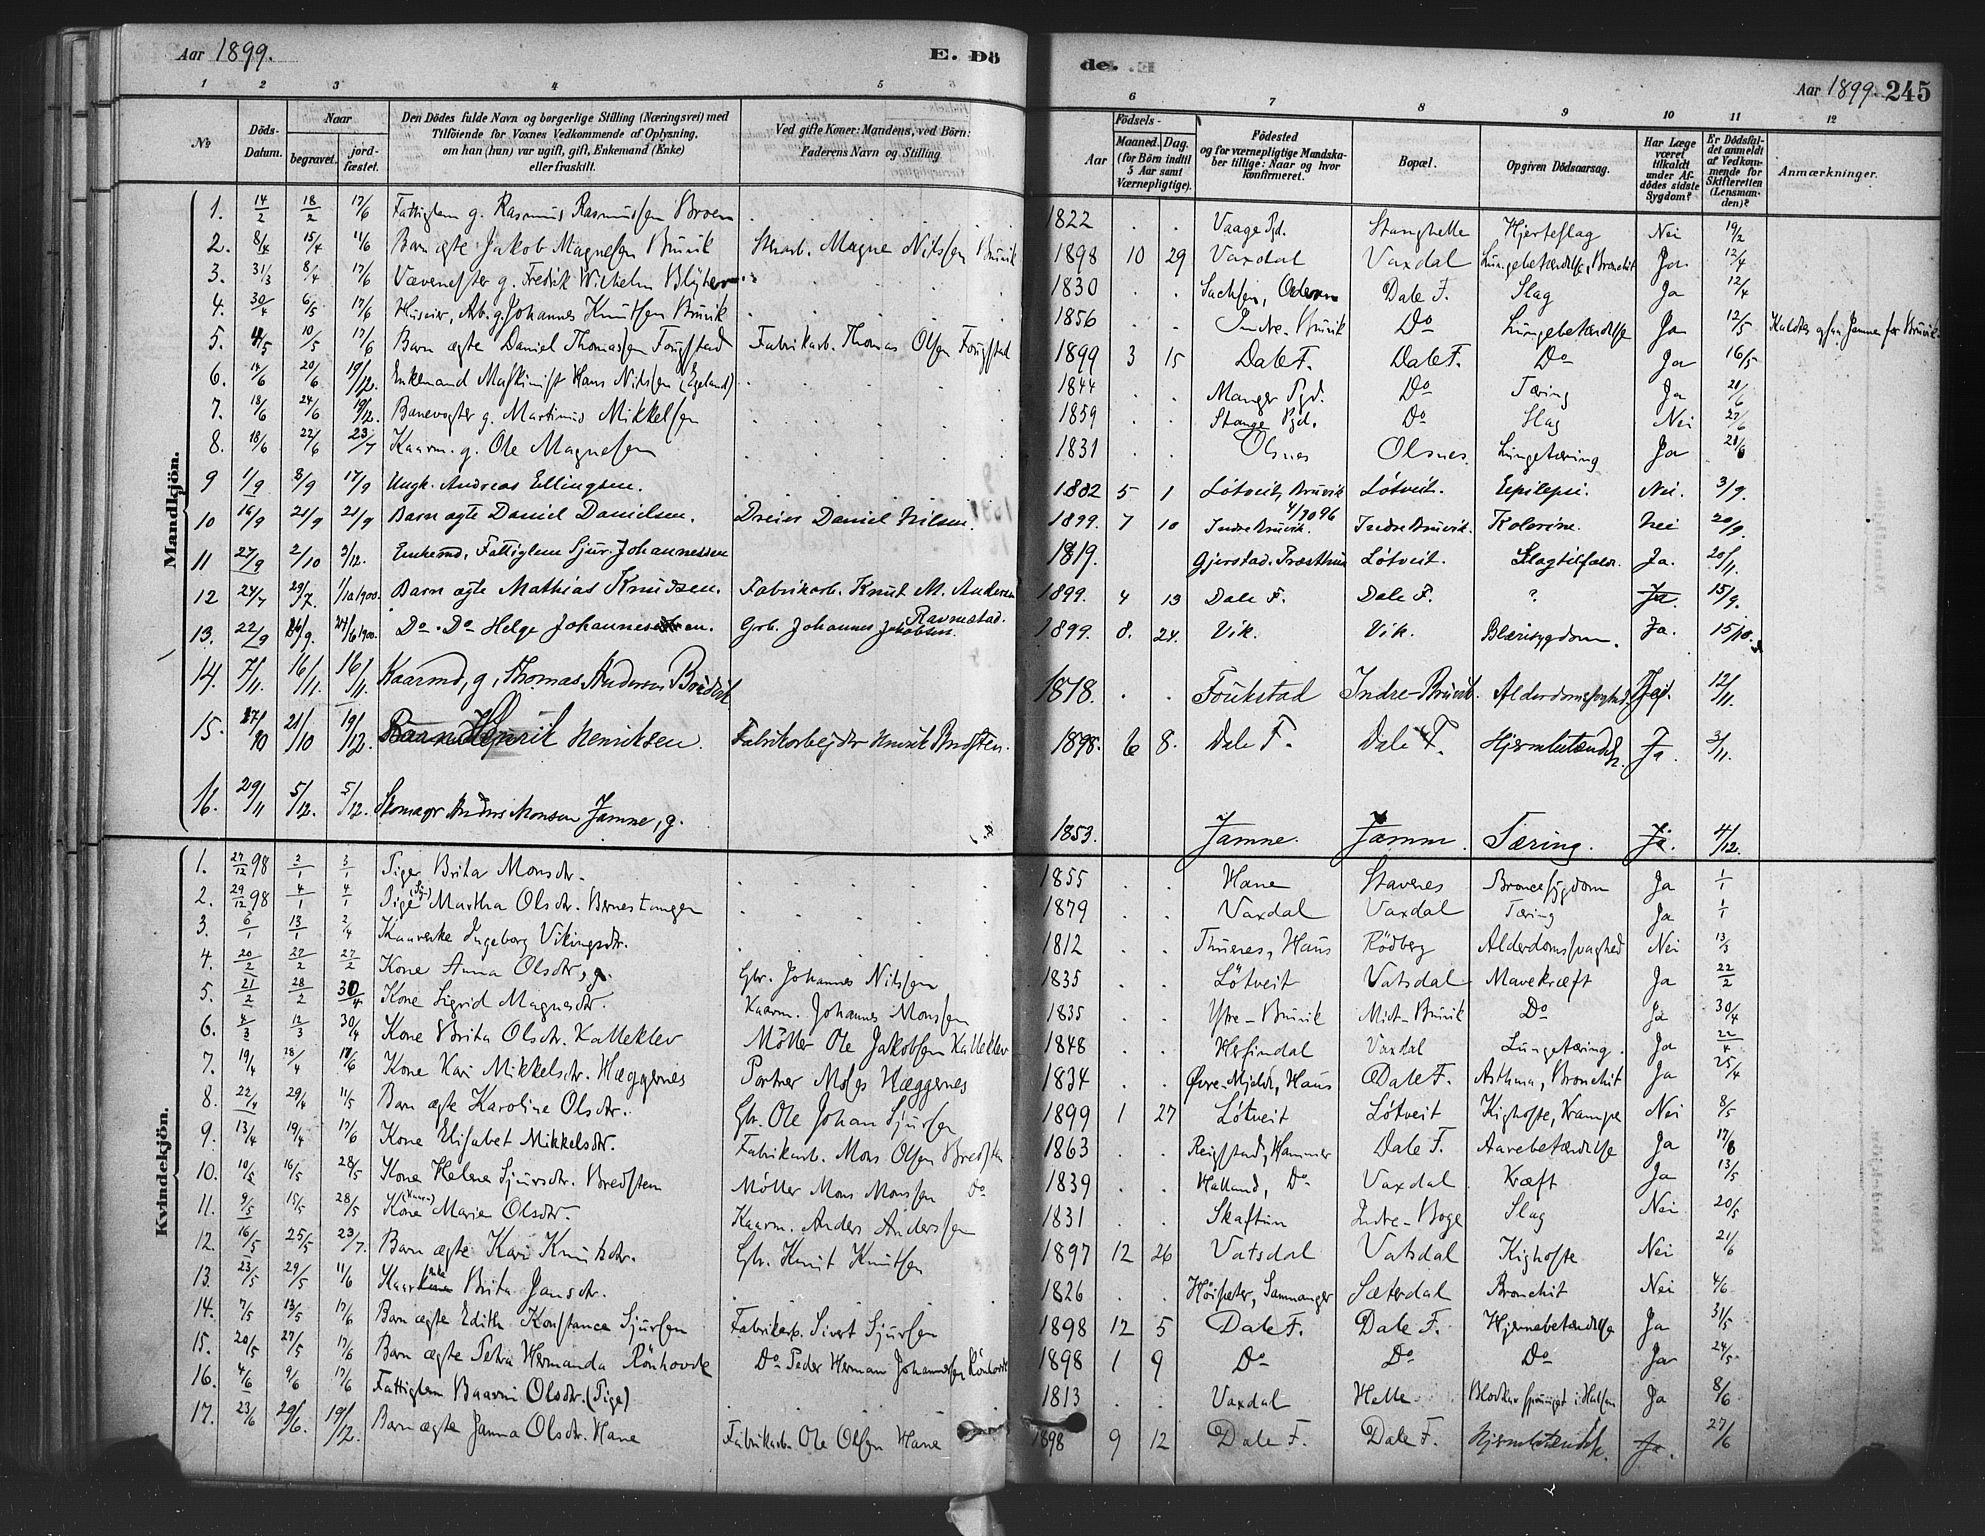 Aar 1899.
E. Dö
de.
Aar 1899. 245
1 2 3 4 5
6 7 8 9 10 11 12
№
Döds-Datum.
Naar
begravet.
jord-fæstet.
Den Dödes fulde Navn og borgerlige Stilling (Næringsvei) med
Tilföiende for Voxnes Vedkommende af Oplysning,
om han (hun) var ugift, gift, Enkemand (Enke)
eller fraskilt.
Ved gifte Koner: Mandens, ved Börn:
Faderens Navn og Stilling
Födsels-
Aar
Maaned. Dag.
(for Börn indtil
5 Aar samt
Værnepligtige).
Födested
og for værnepligtige Mandska-
ber tillige: Naar og hvor
konfirmeret.
Bopæl.
Opgiven Dödsaarsag.
Har Læge
været
tilkaldt
under Af-
dödes sidste
Sygdom?
Er Dödsfal-
det anmeldt
af Vedkom-
mende for
Skifteretten
(Lensman-
den)?
Anmærkninger.
Mandkjön.
1. 14/2 18/2 17/6 Fattiglem g. Rasmus Rasmussen Broen 1822 Vaage Pgd. Stanghelle Hjerteslag Nei 19/2
2. 8/4 15/4 11/6 Barn ægte Jakob Magnesen Bruvik Magne Nilsen Bruvik 1898 10 29 Vaxdal Vaxdal Lungebetændelse, Bronchit Ja 12/4
3. 31/3 8/4 17/6 g. Fredrik Wilhelm 1830 Sachsen, Dale F. Slag Ja 12/4
4. 30/4 6/5 17/6 Huseier, Ab. g. Johannes Knutsen Bruvik 1856 Indre-Bruvik Do Lungebetændelse Ja 12/5 Jamne for Bruvik
5. 4/5 10/5 17/6 Barn ægte Daniel Thomassen Fougstad Fabrikarb. Thomas Olsen Fougstad 1899 3 15 Dale F. Dale F. Do Ja 16/5
6. 14/6 20/6 19/12. Enkemand Maskinist Hans Nilsen (Egeland) 1844 Manger Pgd. Do Tæring Ja 21/6
7. 18/6 24/6 19/12. Banevogter g. Martinus Mikkelsen 1859 Stange Pgd. Do Slag Nei 27/6
8. 18/6 22/6 23/7 Kaarm. g. Ole Magnesen 1831 Olsnes Olsnes. Lungetæring Ja 28/6
9 1/9 8/9 17/9 Ungk. Andreas Ellingsen. 1882 5 1 Løtveit, Bruvik 4/10 96 Løtveit. Epilepsi. Nei. 3/9.
10 16/9 21/9 21/9 Barn ægte Daniel Danielsen. Dreier Daniel Nilsen. 1899. 7 10 Indre Bruvik. Indre Bruvik. Kolerine. Nei 20/9.
11 27/9 2/10 3/12. Enkemd, Fattiglem Sjur Johannessen 1819. Gjerstad, Løtveit. Slagtilfælde. Ja. 20/11.
12 24/7 29/7. 1/10 1900. Barn ægte Mathias Knudsen. Fabrikarb. Knut M. Andersen Ravnestad. 1899. 4 13 Dale F. Dale F. ? Ja. 15/9.
13. 22/9 26/9. 24/6 1900. Do. Do Helge Johannessen. Grb. Johannes Jakobsen. 1899. 8. 24. Vik. Vik. Blæresygdom. Ja. 15/10.
14. 7/11. 16/11. 16/11. Kaarmd, g, Thomas Andersen Bruvik 1818. Foukstad Indre-Bruvik. Nei. 12/11.
15. 17/10 21/10 19/12. Barn Henrik Henriksen. Fabrikarbejder Henrik 1898. 6 8. Dale F. Dale F. Hjernebetændelse. Ja. 3/11.
16. 29/11 5/12. 5/12. Skomager Anders Monsen Jamne, g. 1853. Jamne. Jamne. Tæring. Ja. 4/12.
Kvindekjön.
1. 27/12 98 2/1 3/1 Pige Brita Monsdtr. 1855 Hane Stavenes Ja 1/1
2. 29/12 98 4/1 4/1 Pige Martha Olsdtr. Bernestangen 1879 Vaxdal Vaxdal Tæring Ja 1/1
3. 6/1 13/1 2/4 Kaarenke Ingeborg Vikingsdtr. 1812 Thunes, Haus Rödberg Alderdomssvaghed Nei 13/3
4. 20/2 27/2 27/2 Kone Anna Olsdtr, g. Gbr. Johannes Nilsen 1835 Løtveit Vatsdal Mavekræft Ja 22/2
5. 21/2 28/2 30/4 Kone Sigrid Magnesdtr. Kaarm. Johannes Monsen 1835 Ytre-Bruvik Midt-Bruvik Do Ja 30/4
6. 4/3 12/3 30/4 Kone Brita Olsdtr. Kalleklev Möller Ole Jakobsen Kalleklev 1848 Herfindal Vaxdal Lungetæring. Ja 22/4
7. 19/4 28/4 18/6 Kone Kari Mikkelsdtr. Hæggernes Portner Mons Hæggernes 1834 Øvre-Mjelde, Haus Dale F. Asthma, Bronchit Ja 25/4
8. 22/4 29/4 11/5 Barn ægte Karoline Olsdtr. Gbr. Ole Johan Sjursen 1899 1 27 Løtveit Løtveit Kighoste, Krampe Nei 8/5
9. 13/4 19/4 17/6 Kone Elisabet Mikkelsdtr. Fabrikarb. Mons Olsen Bredsten 1863 Reigstad, Hammer Dale F. Aarebetændelse Ja 17/6
10. 10/5 16/5 28/5 Kone Helene Sjursdtr. Bredsten Möller Mons Monsen Do 1839 Halland, Do Vaxdal Kræft Ja 13/5
11. 9/5 15/5 28/5 Kone (Kaar) Marie Olsdtr. Kaarm. Anders Anderssen 1831 Skaftun Indre-Boge Slag Nei 20/5
12. 16/5 25/5 23/7. Barn ægte Kari Knutsdtr. Gbr. Knut Knutsen 1897 12 26 Vatsdal Vatsdal Kighoste Nei 21/6
13. 23/5 29/5 11/6 Kaarenke Brita Jansdtr. 1826 Höisæter, Samnanger Sæterdal Bronchit Nei 4/6
14. 7/5 13/5 17/6 Barn ægte Edith Konstance Sjursen Fabrikarb. Sivert Sjursen 1898 12 5 Dale F. Dale F. Hjernebetændelse Ja 31/5
15. 20/5 27/5 17/6 Barn ægte Petra Hermanda Rönhovde Do Peder Herman Johannessen Rönhovde 1898 1 9 Do Do Do Ja 24/5
16. 4/6 9/6 17/6 Fattiglem Baarni Olsdtr. (Pige) 1813 Vaxdal Helle Blodkar sprunget i Halsen Ja 8/6
17. 23/6 29/6. 19/12. Barn ægte Janna Olsdtr. Hane Fabrikarb. Ole Olsen Hane 1898 9 12 Dale F. Dale F. Hjernebetændelse. Ja. 27/6